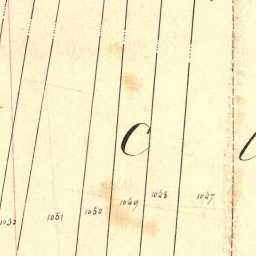 C
1052 1051 1050 1049 1048 1047